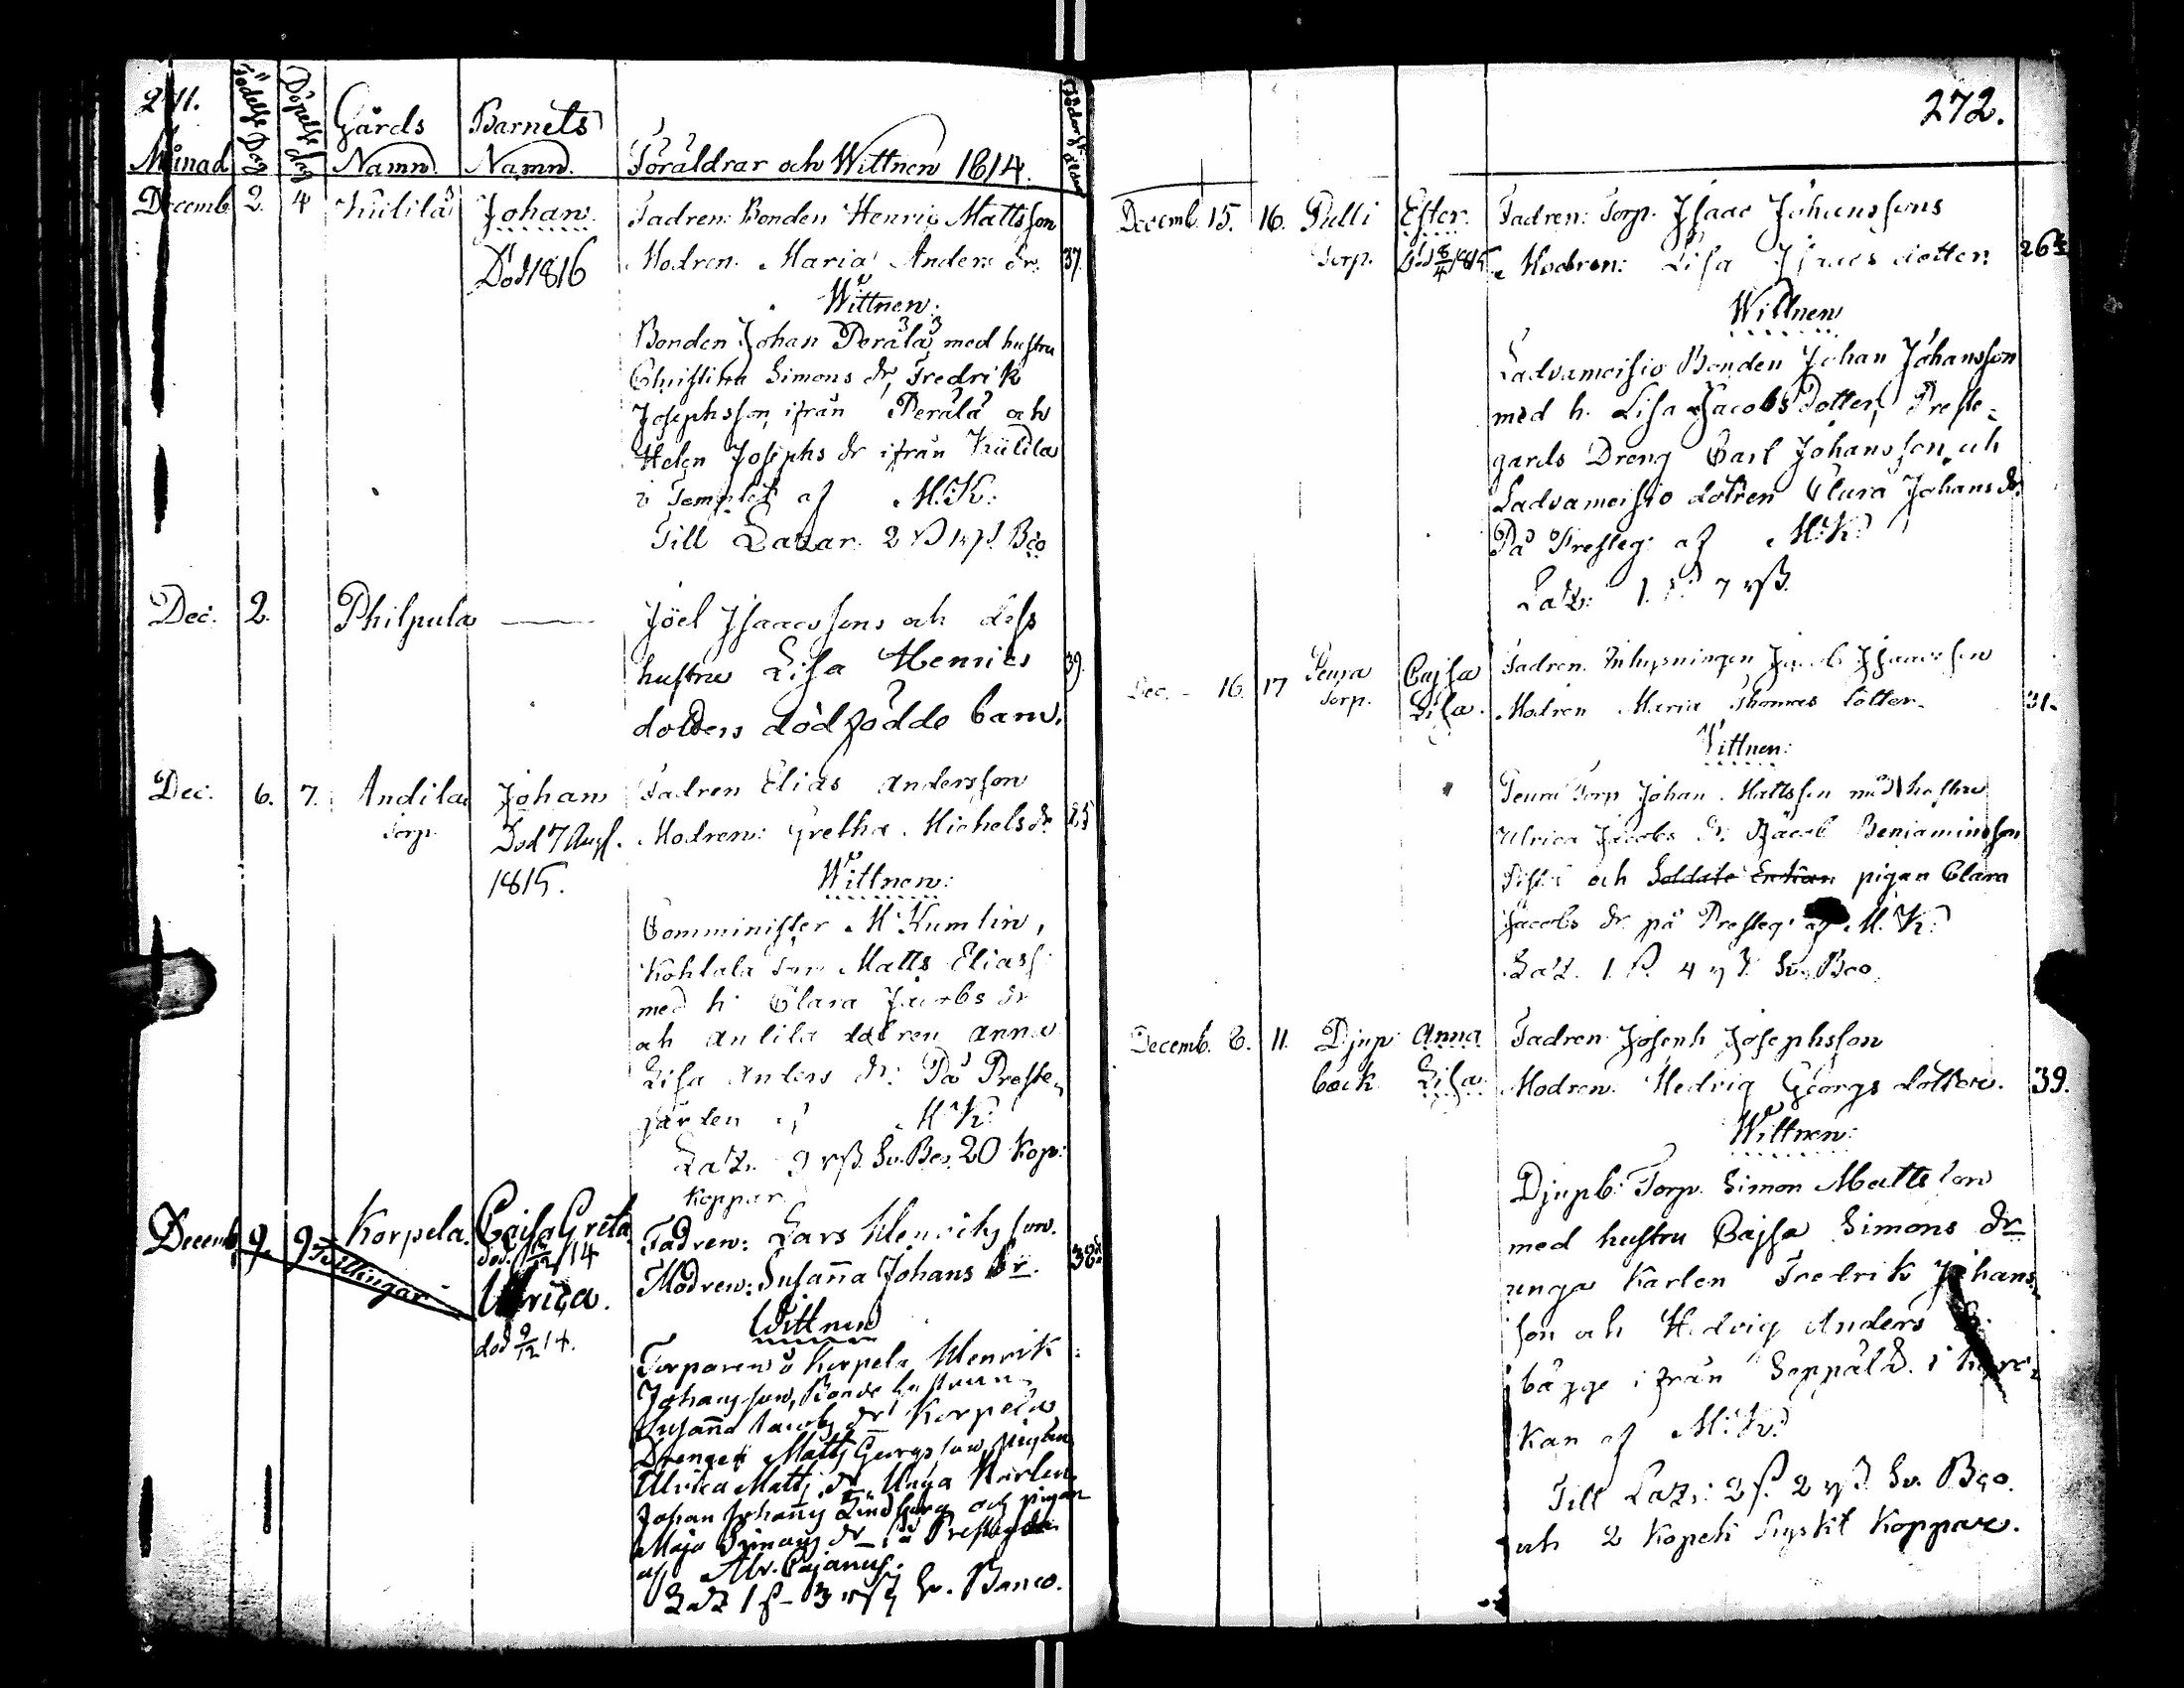 271.
Månad Födelse Dag Döpelse dag Gårds Namn. Barnets Namn. Föräldrar och Wittnen 1814.
Decemb. 2. 4 Kiililä Johan. Fadren: Bonden Henric Mattsson
Död 1816 Modren. Maria Anders dr. 37.
Wittnen:
Bonden Johan Perälä, med hustru
Christina Simons dr, Fredrik
Josephsson, ifrån Perälä och
Helen Josephs dr ifrån Kiilila
i Templet af M:K:
Till Lazar. 2 Bco
Dec. 2. Philpula — Joël Isaacssons och dess
hustru Lisa Henrics 39.
dotters dödfödde barn.
Dec. 6. 7. Andila Johan Fadren Elias Andersson
Torp. Död 7 Aug. Modren: Gretha Michels dr 25
1815. Wittnen:
Comminister M Kumlin,
Kohlala Torp Matts Eliass:
med h: Clara Jacobs dr
och Antila dotren Anna
Lisa Anders dr: På Preste-
gården af M:K:
Laz. 9 Sv. Bco. 20 Kop:
Koppar.
Decemb. 9. 9 Korpela. Cajsa Greta Fadren: Lars Henricksson.
Tvillingar död 12/14 Modren: Susanna Johans dr. 38
Ulrica. Wittnen
död 9/12 14. Torparen å Korpela Henrik
Johansson, Bonde hustrun
Susanna Jacobs dr Korpela
Drengen Matts Georgsson, pigan
Ulrica Matts dr, Unga Karlen
Johan Johans Lindberg och pigan
Maja Simons dr på Prestegården
af Abr. Cajanus.
Laz 1 s- 3 Sv. Banco.
272.
Decemb. 15. 16. Pulli Ester. Fadren: Torp. Isaac Johanssons
Torp. Död 8/4 1815. Modren: Lisa Isaacs dotter. 26
Wittnen
Ladvamoisio Bonden Johan Johansson
med h. Lisa Jacobs Dotter, Preste-
gards Dreng Carl Johansson, och
Ladvamoisio dotren Clara Johans dr.
På Presteg: af M:K:
Laz: 1. 7
Dec. - 16. 17 Peura Cajsa Fadren. Inhysningen Jacob Isaacsson
Torp. Lisa. Modren Maria Thomas dotter. 31.
Wittnen:
Peura Torp Johan Mattsson med hustru
Ulrica Jacobs dr. Jacob Beniaminsson
och Soldate Enkan pigan Clara
Jacobs dr på Presteg: af M.K:
Laz. 1. 4 Sv. Bco.
Decemb. 8. 11. Djup Anna Fadren Joseph Josephsson
back Lisa. Modren. Hedvig Georgs dotter. 39.
Wittnen:
Djupb: Torp. Simon Mattsson
med hustru Cajsa Simons dr
unga Karlen Fredrik Johans-
son och Hedvig Anders dr.
bägge ifrån Seppälä. i Kyrc-
kan af M:K:
Till Laz: 2 2 Sv. Bco.
och 2 Kopek Ryskt Koppar.